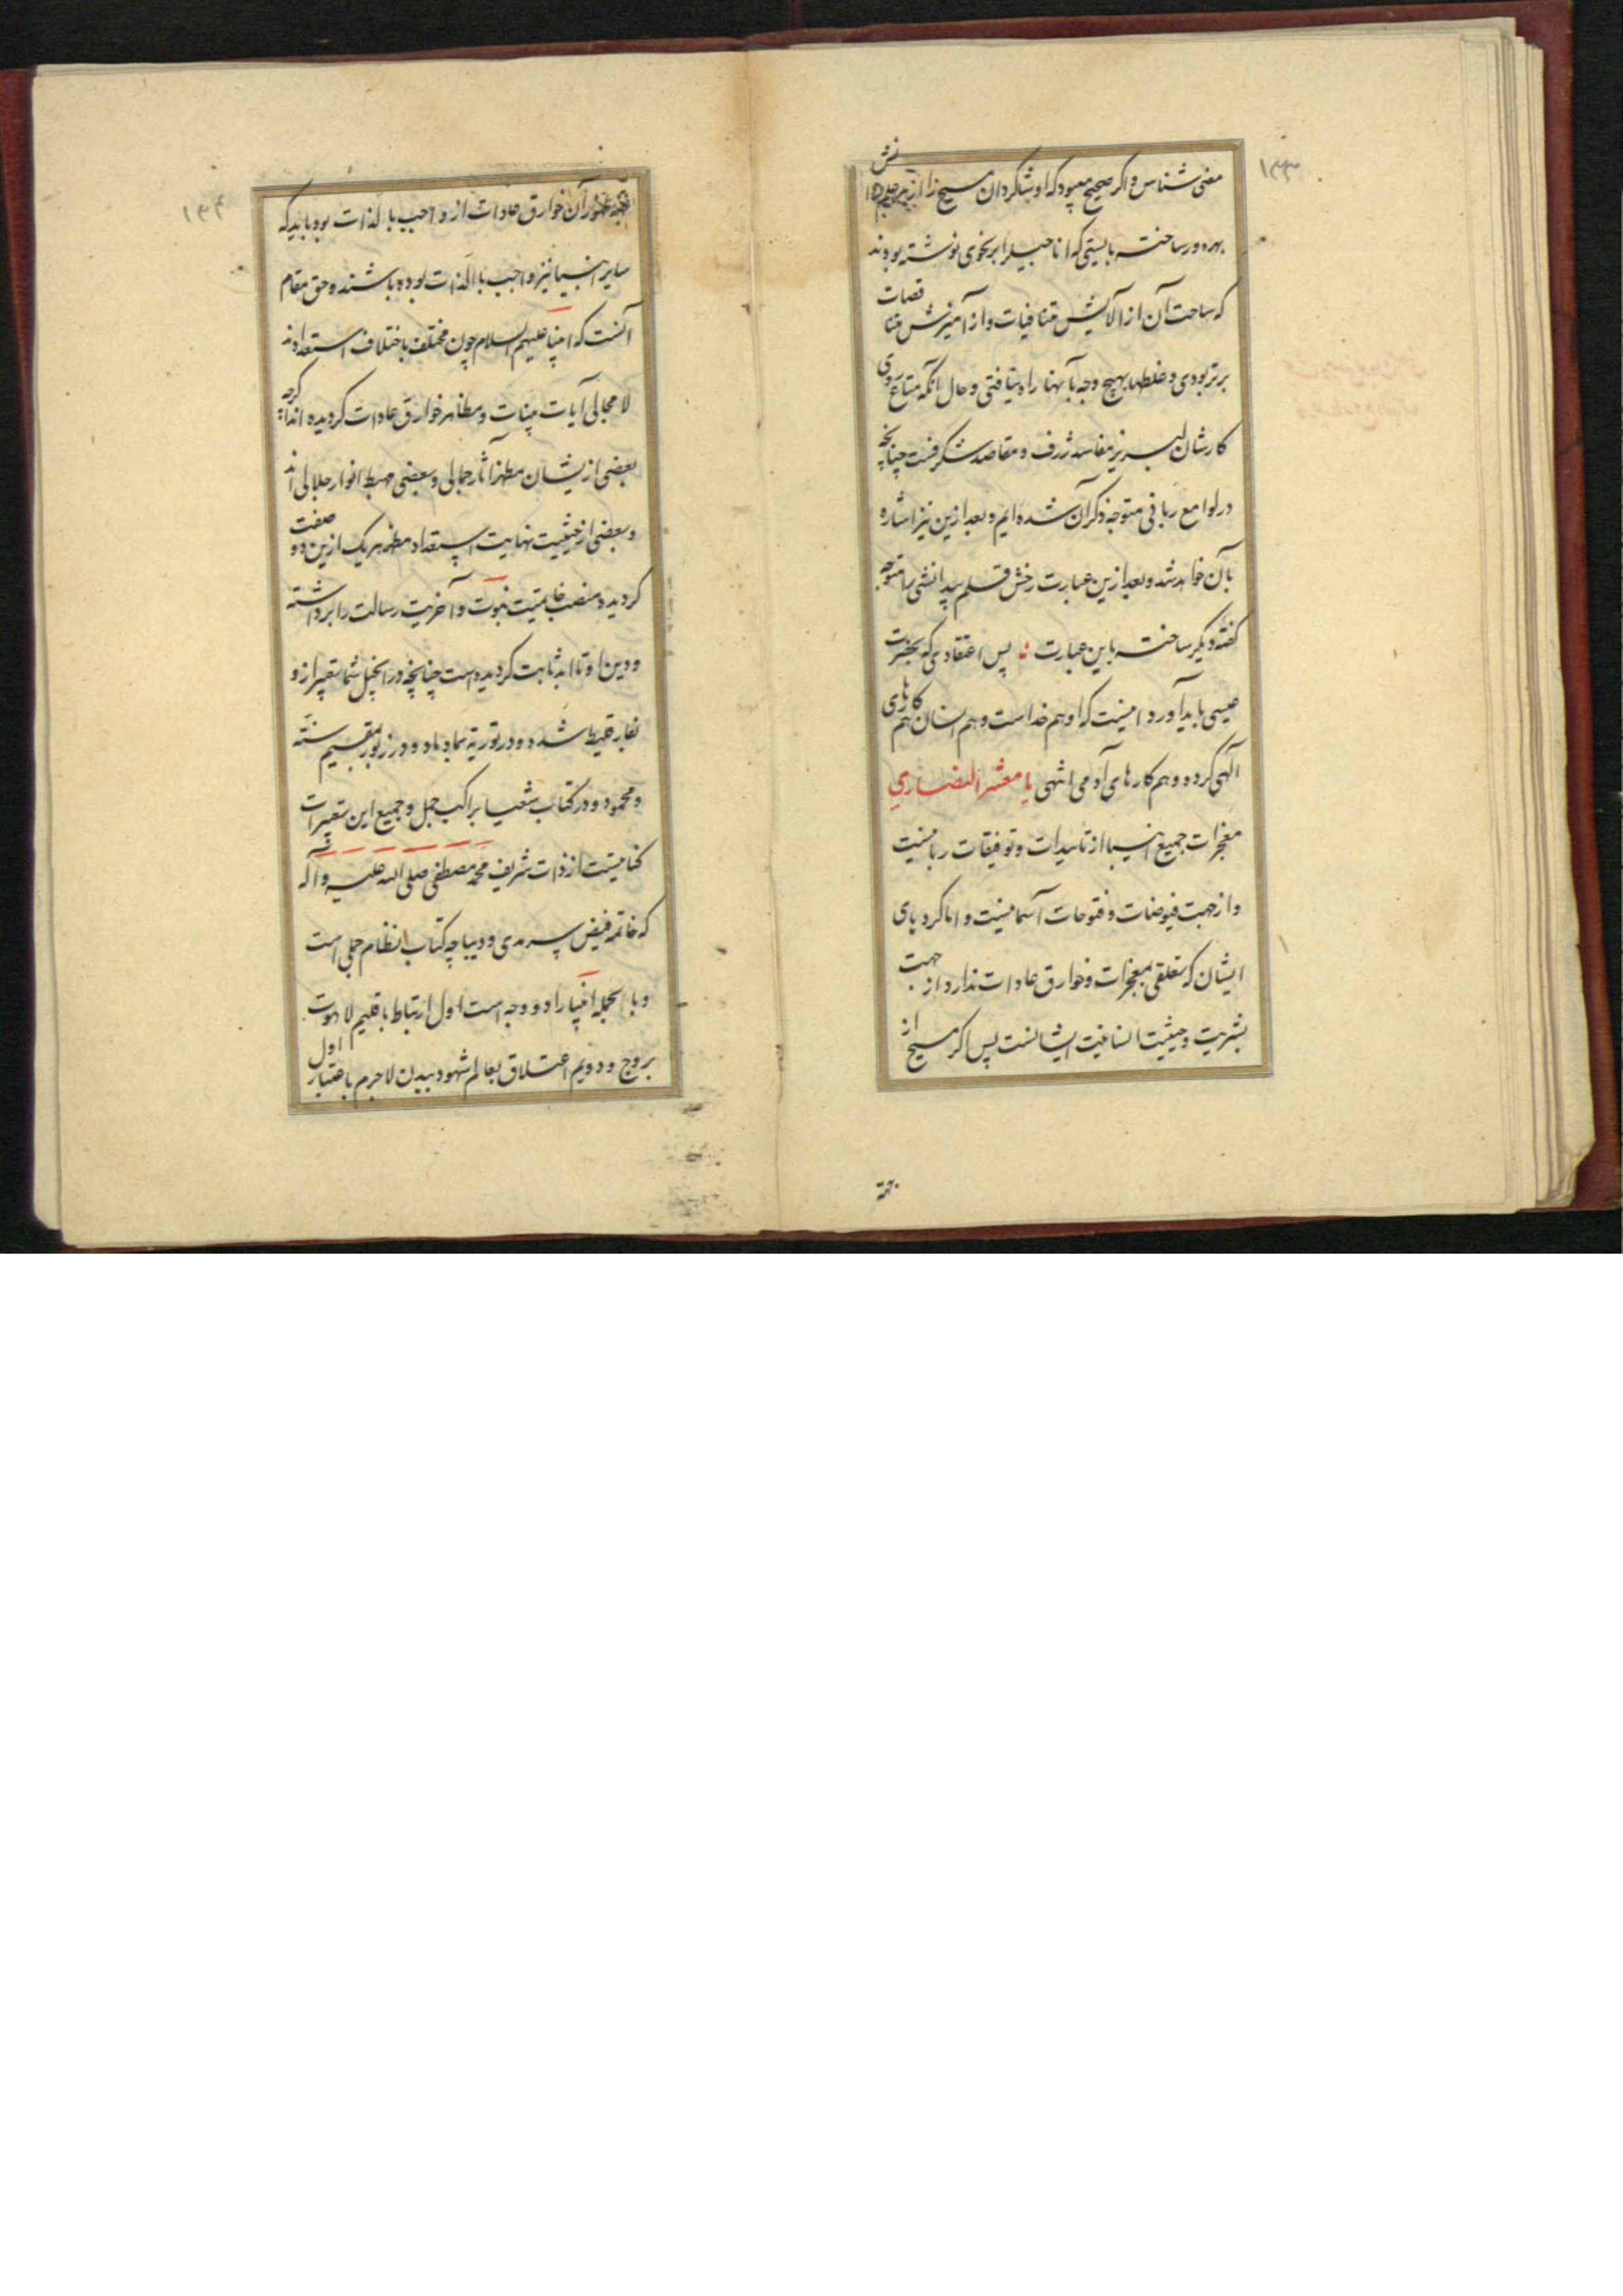 ۱۳۳
معنی شناس و اکر صحیح میبود که او شاکردان مسیح را از دانش
بهره ور ساخت بایستی که اناجیل را بر نحوی نوشته بودند
که ساحت آن از آلایش متنافیات و از آمیزش متناقضات
برتر بودی و غلطها بهیچ وجه بآنها راه نیافتی و حال انکه متاع روی
کارشان لبریز مفاسد ژرف و مقاصد شکرفست چنانچه
در لوامع ربانی متوجه ذکر آن شده ایم و بعد ازین نیز اشاره
بآن خواهد شد و بعد ازین عبارت رخش قلم بیدانشی را متوجه
کفته دیکر ساخت باین عبارت : پس اعتقادی که بحضرت
عیسی باید آورد اینست که او هم خداست و هم انسان هم کارهای
آلهی کرده و هم کارهای آدمی انتهی یا معشر النصاری
معجزات جمیع انبیا از تاییدات و توفیقات ربانیست
و از جهت فیوضات و فتوحات آسمانیست و اما کردیهای
ایشان که تعلقی بمعجزات و خوارق عادات ندارد از جهت
بشریت و حیثیت انسانیت ایشانست پس اکر مسیح از
۱۳۴
آن خوارق عادات از واجب بالذات بود باید که
سایر انبیا نیز واجب بالذات بوده باشند و حق مقام
آنست که انبیا علیهم السلام چون مختلف باختلاف استعدادند
لا مجالی آیات بینات و مظاهر خوارق عادات کردیده اند اکرچه
بعضی ازیشان مظهر آثار جمالی و بعضی مهبط انوار جلالی اند
و بعضی از حیثیت نهایت استعداد مظهر هر یک ازین دو صفت
کردیده منصب خاتمیت نبوت و آخریت رسالت را برداشته
و دین او تا ابد ثابت کردیده است چنانچه در انجیل شما تعبیر ازو
بفارقلیط شده و در توریة بماد ماد و در زبور بمقیم سنّة
و محمود و در کتاب شعیا براکب جمل و جمیع این تعبیرات
کنایتیست از ذات شریف محمد مصطفی صلی الله علیه و آله
که خاتمه فیض سرمدی و دیباچه کتاب انتظام جملی است
و بالجمله انبیا را دو وجه است اول ارتباط باقلیم لاهوت
بروح و دویم اعتلاق بعالم شهود ببدن لاجرم باعتبار اول